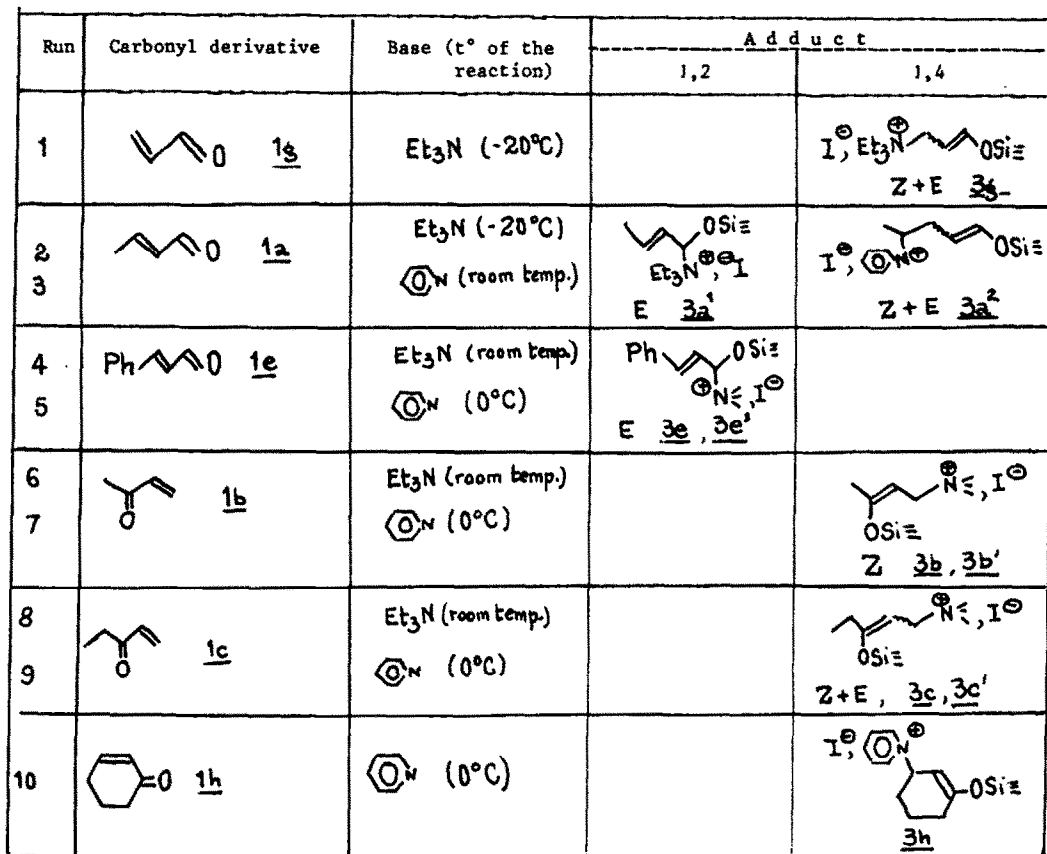 Run Carbonyl derivative Base (t° of the reaction) Adduct
1,2 1,4
1 O 1g Et₃N (-20°C) I⊖, Et₃N⊕ OSi≡
Z + E 3g
2 O 1a Et₃N (-20°C) OSi≡ Et₃N⊕, ⊖I
3 N (room temp.) I⊖, N⊕ OSi≡
E 3a¹ Z + E 3a²
4 Ph O 1e Et₃N (room temp.) Ph OSi≡
5 N (0°C) ⊕N≡, I⊖
E 3e, 3e'
6 O 1b Et₃N (room temp.) ⊕N≡, I⊖
7 N (0°C) OSi≡
Z 3b, 3b'
8 O 1c Et₃N (room temp.) ⊕N≡, I⊖
9 N (0°C) OSi≡
Z+E, 3c, 3c'
10 O 1h N (0°C) I⊖, N⊕ OSi≡
3h